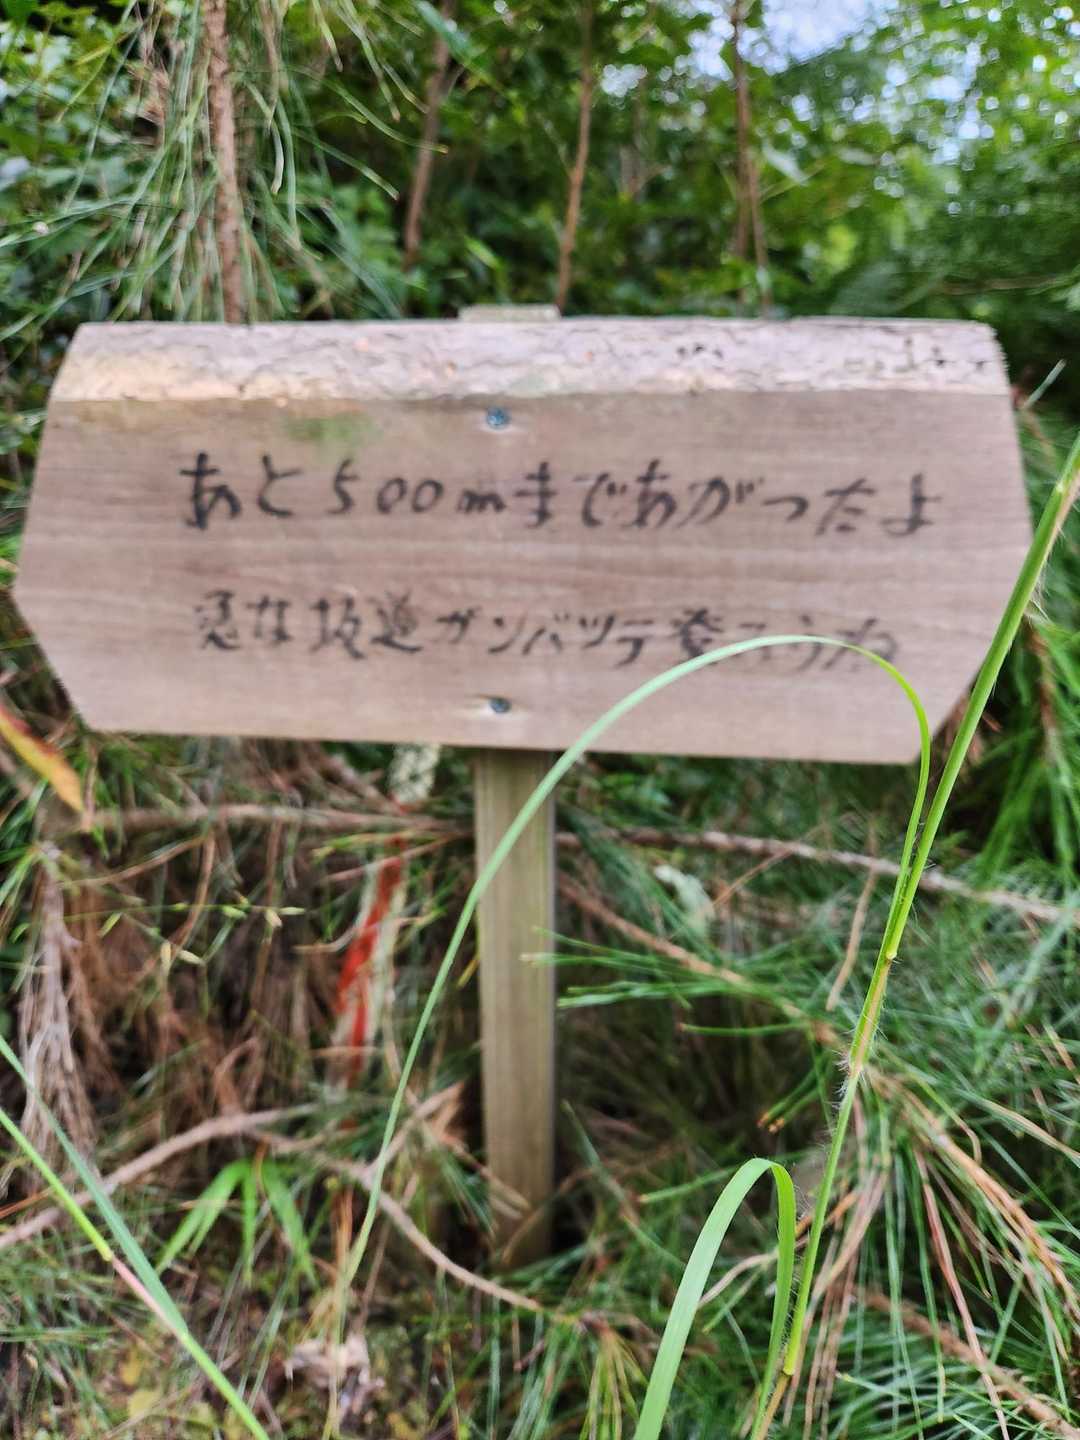 あと500mまであがったよ
急な坂道ガンバッテ登ろうね